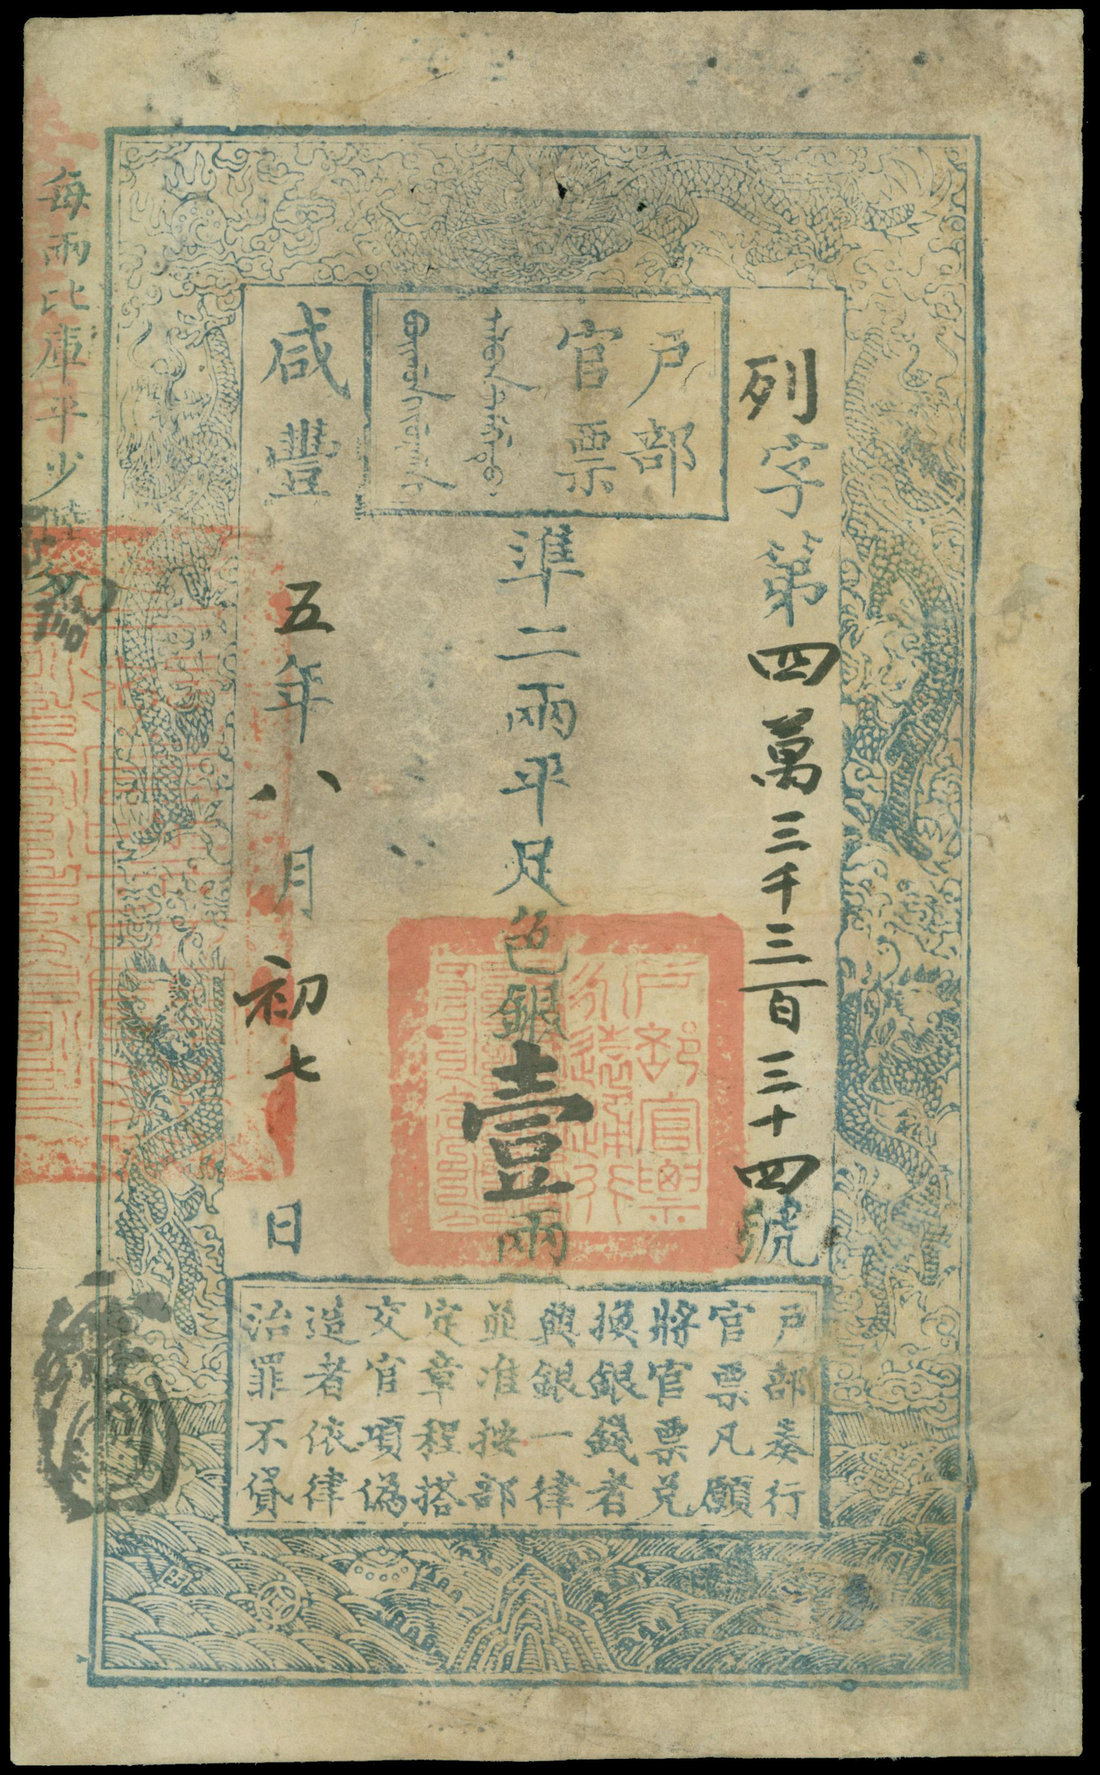 戶部
官票
列字第四萬三千三百三十四號
準二兩平足色銀壹兩
咸豐五年八月初七日
戶部奏行
官票凡願
將官票兌
換銀錢者
與銀一律
並准按部
定章程搭
交官項偽
造者依律
治罪不貸
每兩比庫平少陸分
戶部官票
永遠通行